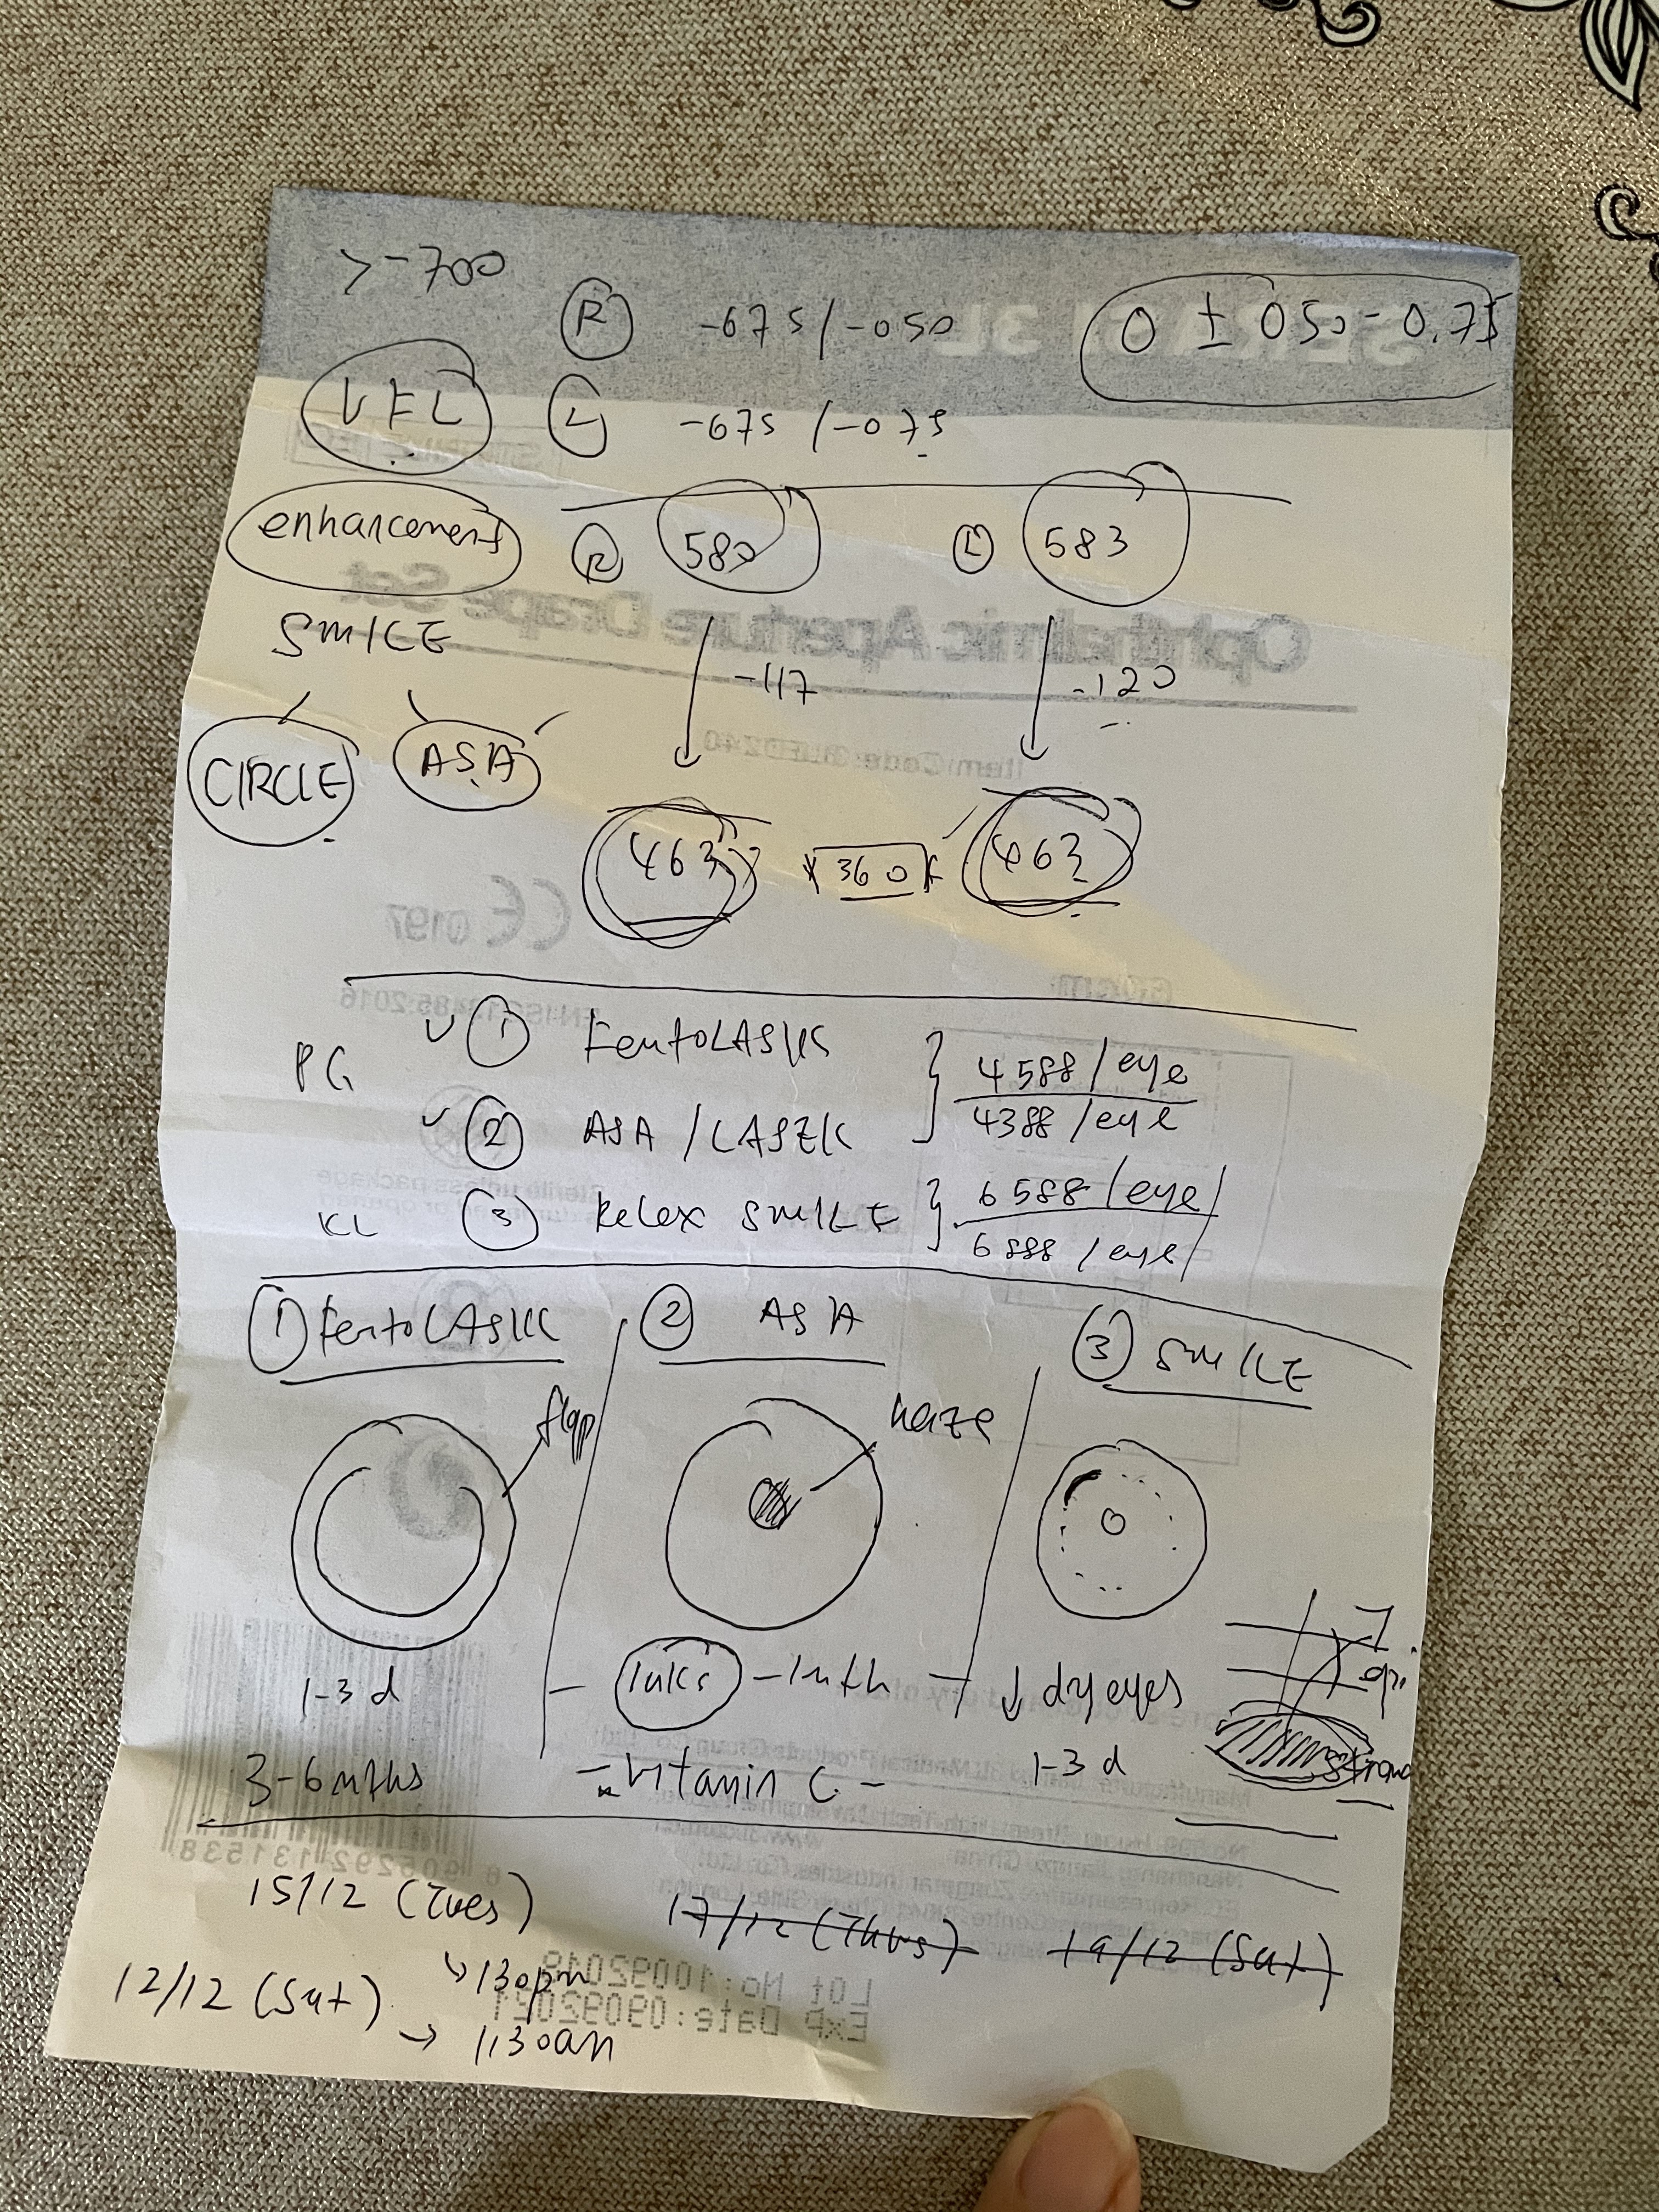 >-700
(R) -675/-050
0 ± 050-0.75
VFL
(L) -675/-075
enhancement
(R) 580
(L) 583
SMILE
-117
-120
CIRCLE
ASA
463
360
463
PG
① FemtoLASIK
4588/eye
② ASA/LASEK
4388/eye
KL
③ Relex SMILE
6588/eye
6888/eye
① FemtoLASIK
② ASA
③ SMILE
flap
haze
1-3 d
1wks - 1mth
↓ dry eyes
epi
3-6 mths
- Vitamin C -
1-3 d
stroma
15/12 (Tues)
17/12 (Thurs)
19/12 (Sat)
↳ 130pm
12/12 (Sat)
→ 1130am
SERAGEN 3L
Ophthalmic Aperture Drape Set
CE 0197
60cm
EN ISO 13485:2016
Lot No: 10092019
Exp Date: 09092021